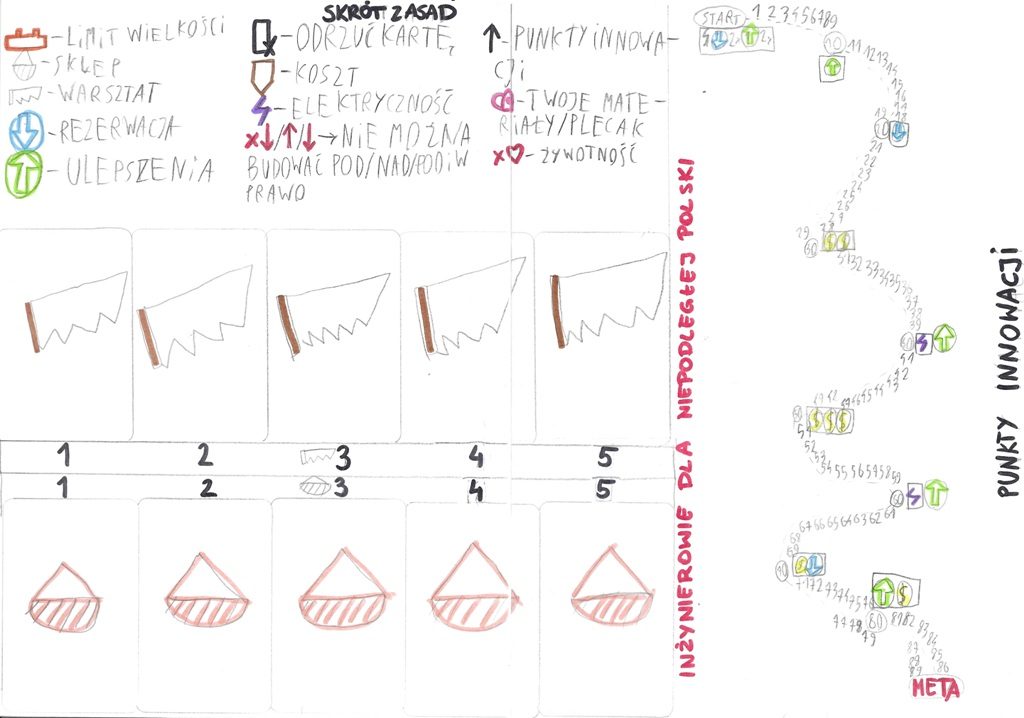 SKRÓT ZASAD
-LIMIT WIELKOŚCI
-SKLEP
-WARSZTAT
-REZERWACJA
-ULEPSZENIA
-ODRZUĆ KARTĘ,
-KOSZT
-ELEKTRYCZNOŚĆ
x↓/↑/↓→NIE MOŻNA
BUDOWAĆ POD/NAD/POD I W
PRAWO
↑-PUNKTY INNOWA-
CJI
-TWOJE MATE-
RIAŁY/PLECAK
x♡-ŻYWOTNOŚĆ
1 2 3 4 5
1 2 3 4 5
INŻYNIEROWIE DLA NIEPODLEGŁEJ POLSKI
START
1 2 3 4 5 6 7 8 9
10
11 12 13 14
15
16
18
20
21
22
23
25
26
29
$ $
31 32 33 34 35
37
38
39
42
$ $ $
52
54 55 56 57 58
60
61
67 66 65 64 63 62
68
69
70
$
71 72 73 74 75 76
$
77 78
79
80
81 82
83
84
85
86
META
PUNKTY INNOWACJI